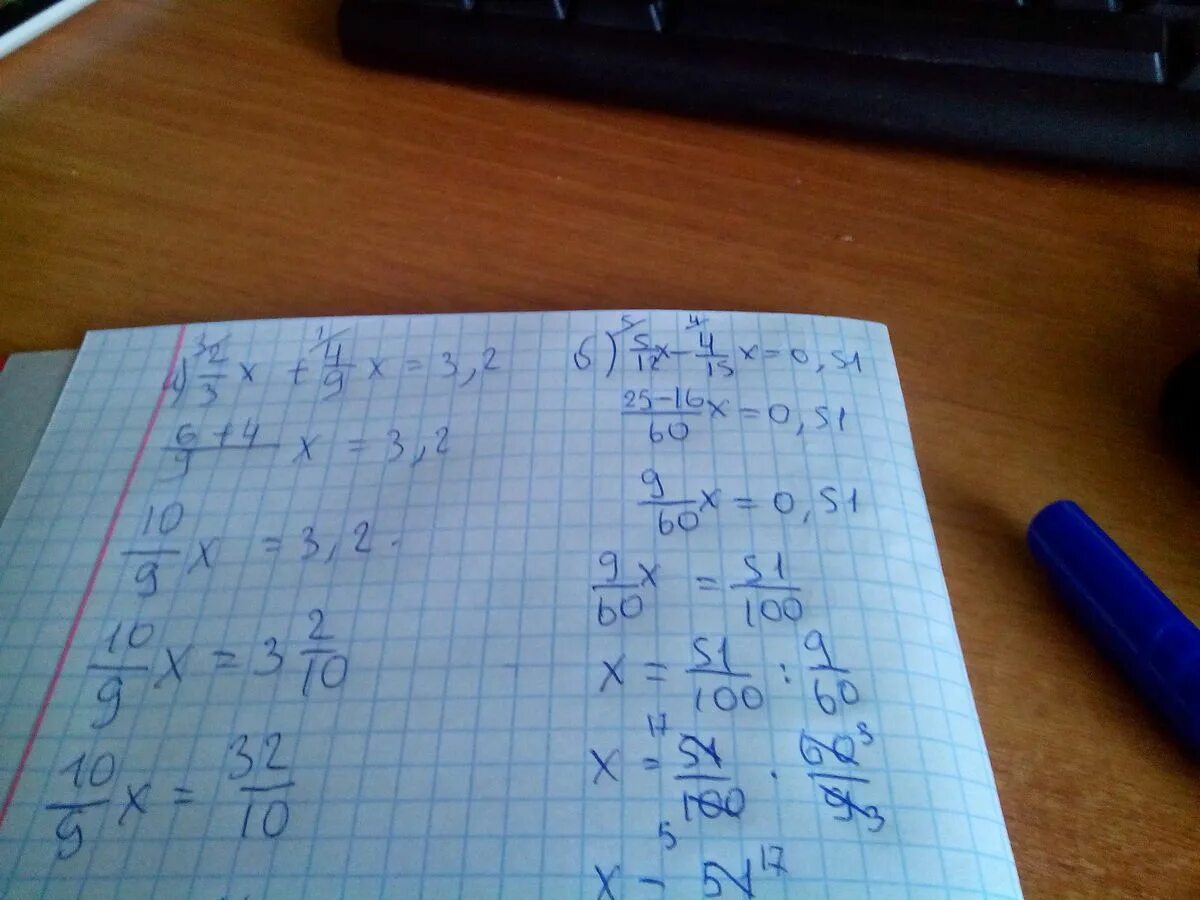 а) 2/3 x + 4/9 x = 3,2
(6+4)/9 x = 3,2
10/9 x = 3,2
10/9 x = 3 2/10
10/9 x = 32/10
б) 5/12 x - 4/15 x = 0,51
(25-16)/60 x = 0,51
9/60 x = 0,51
9/60 x = 51/100
x = 51/100 : 9/60
x = 51/100 · 60/9
x = 51 17